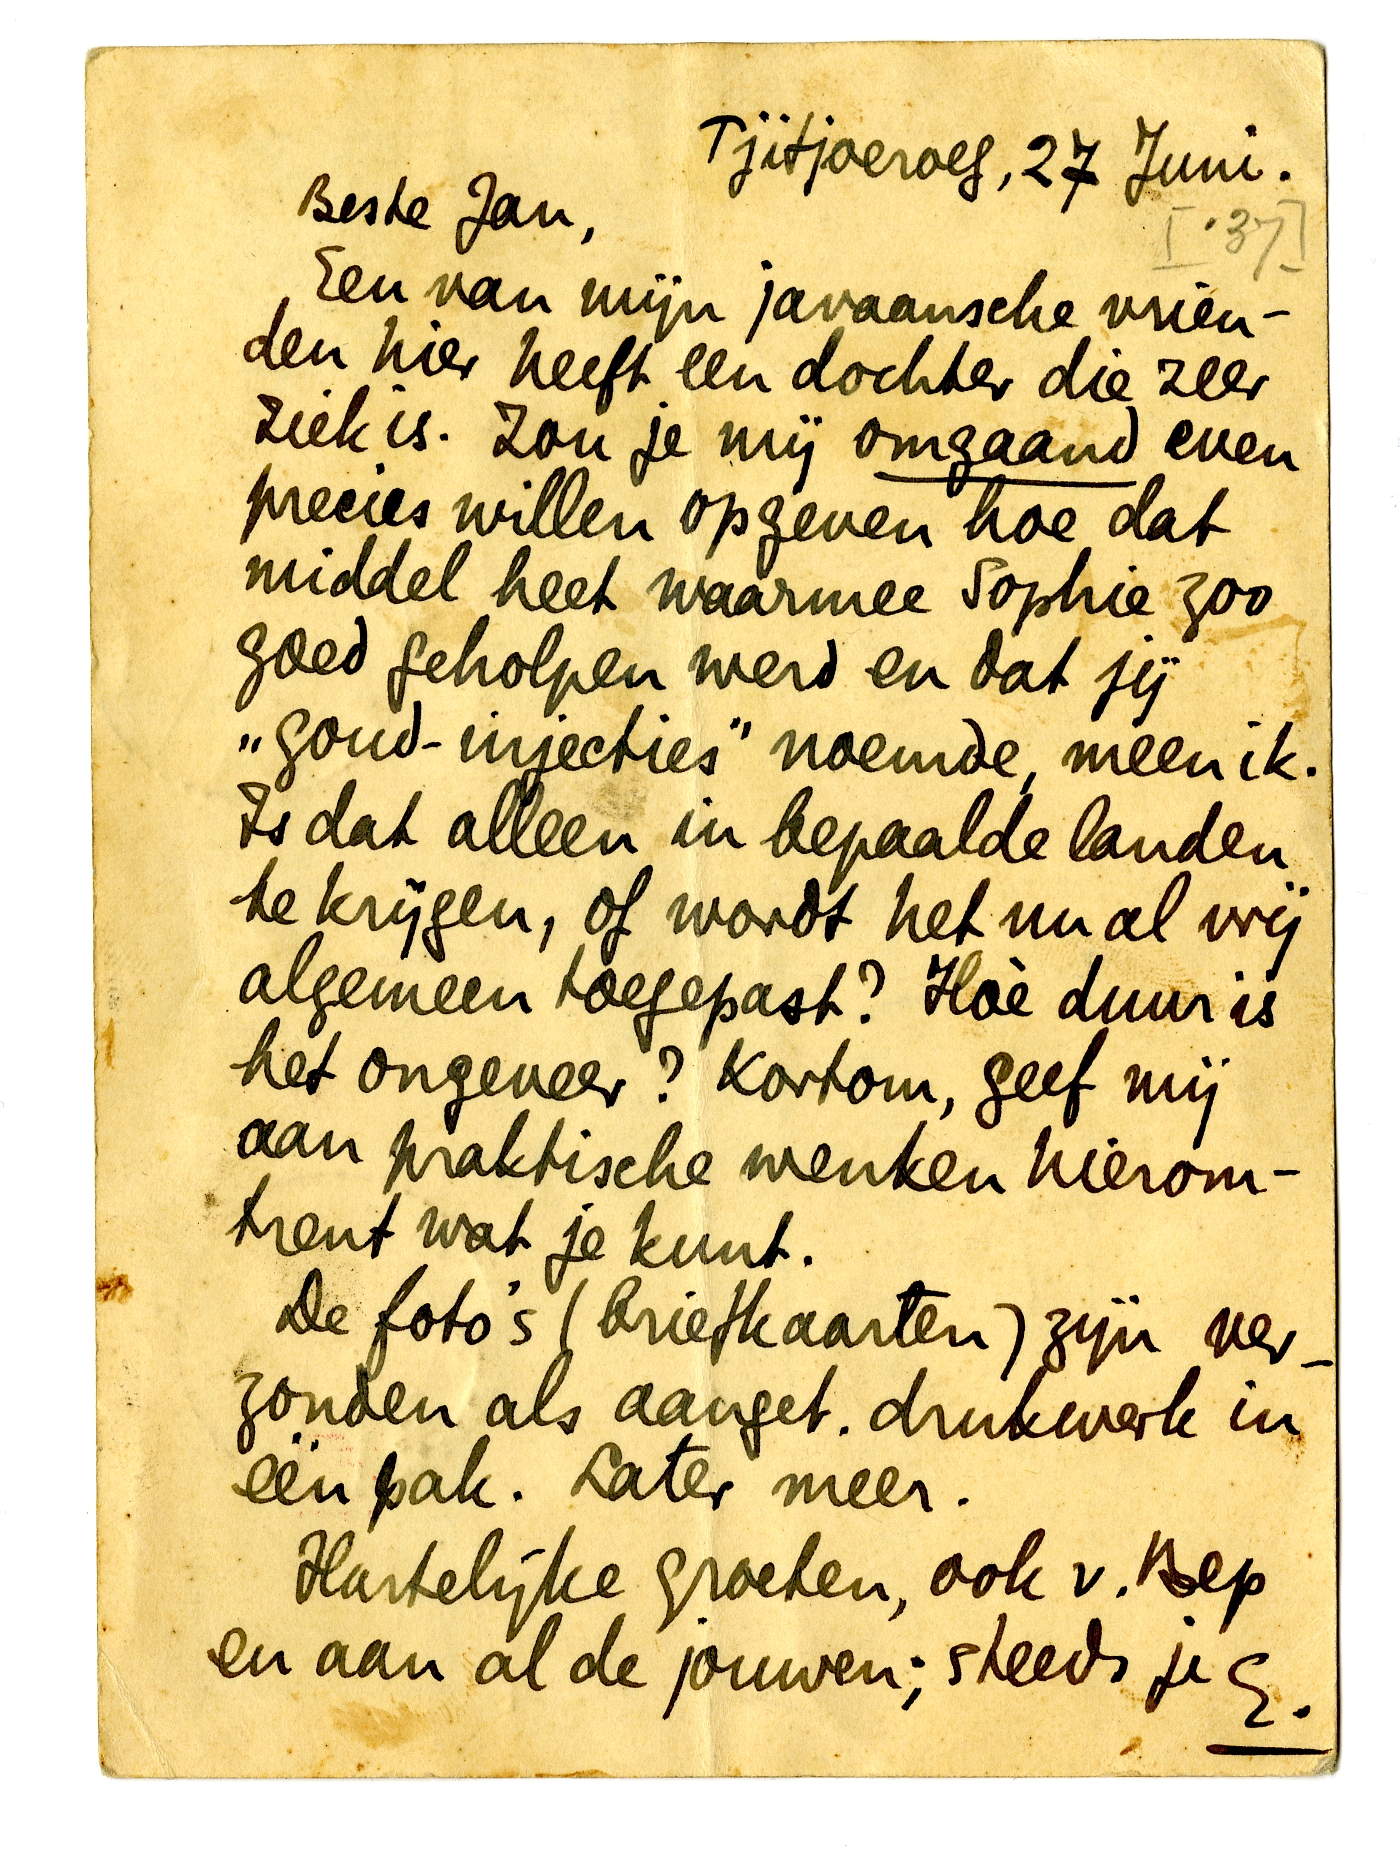 Tjitjoeroeg, 27 Juni.
[ '37]
Beste Jan,
Een van mijn javaansche vrien-
den hier heeft een dochter die zeer
ziek is. Zou je mij omgaand even
precies willen opgeven hoe dat
middel heet waarmee Sophie zoo
goed geholpen werd en dat jij
„goud-injecties" noemde, meen ik.
Is dat alleen in bepaalde landen
te krijgen, of wordt het nu al vrij
algemeen toegepast? Hòe duur is
het ongeveer? Kortom, geef mij
aan praktische wenken hierom-
trent wat je kunt.
De foto's (briefkaarten) zijn ver-
zonden als aanget. drukwerk in
één pak. Later meer.
Hartelijke groeten, ook v. Bep
en aan al de jouwen; steeds je E.